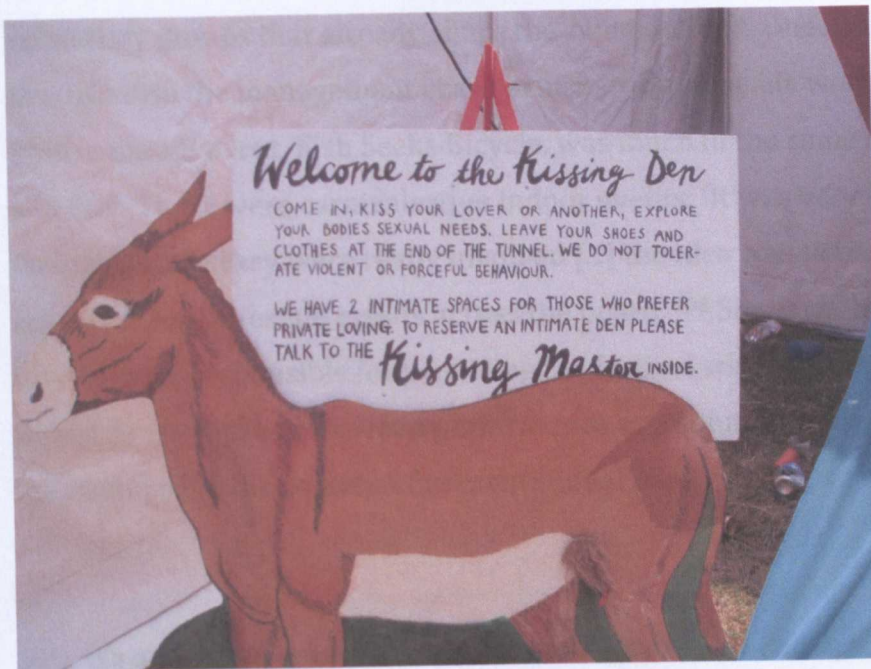 Welcome to the Kissing Den
COME IN, KISS YOUR LOVER OR ANOTHER, EXPLORE
YOUR BODIES SEXUAL NEEDS. LEAVE YOUR SHOES AND
CLOTHES AT THE END OF THE TUNNEL. WE DO NOT TOLER-
ATE VIOLENT OR FORCEFUL BEHAVIOUR.
WE HAVE 2 INTIMATE SPACES FOR THOSE WHO PREFER
PRIVATE LOVING. TO RESERVE AN INTIMATE DEN PLEASE
TALK TO THE Kissing Master INSIDE.